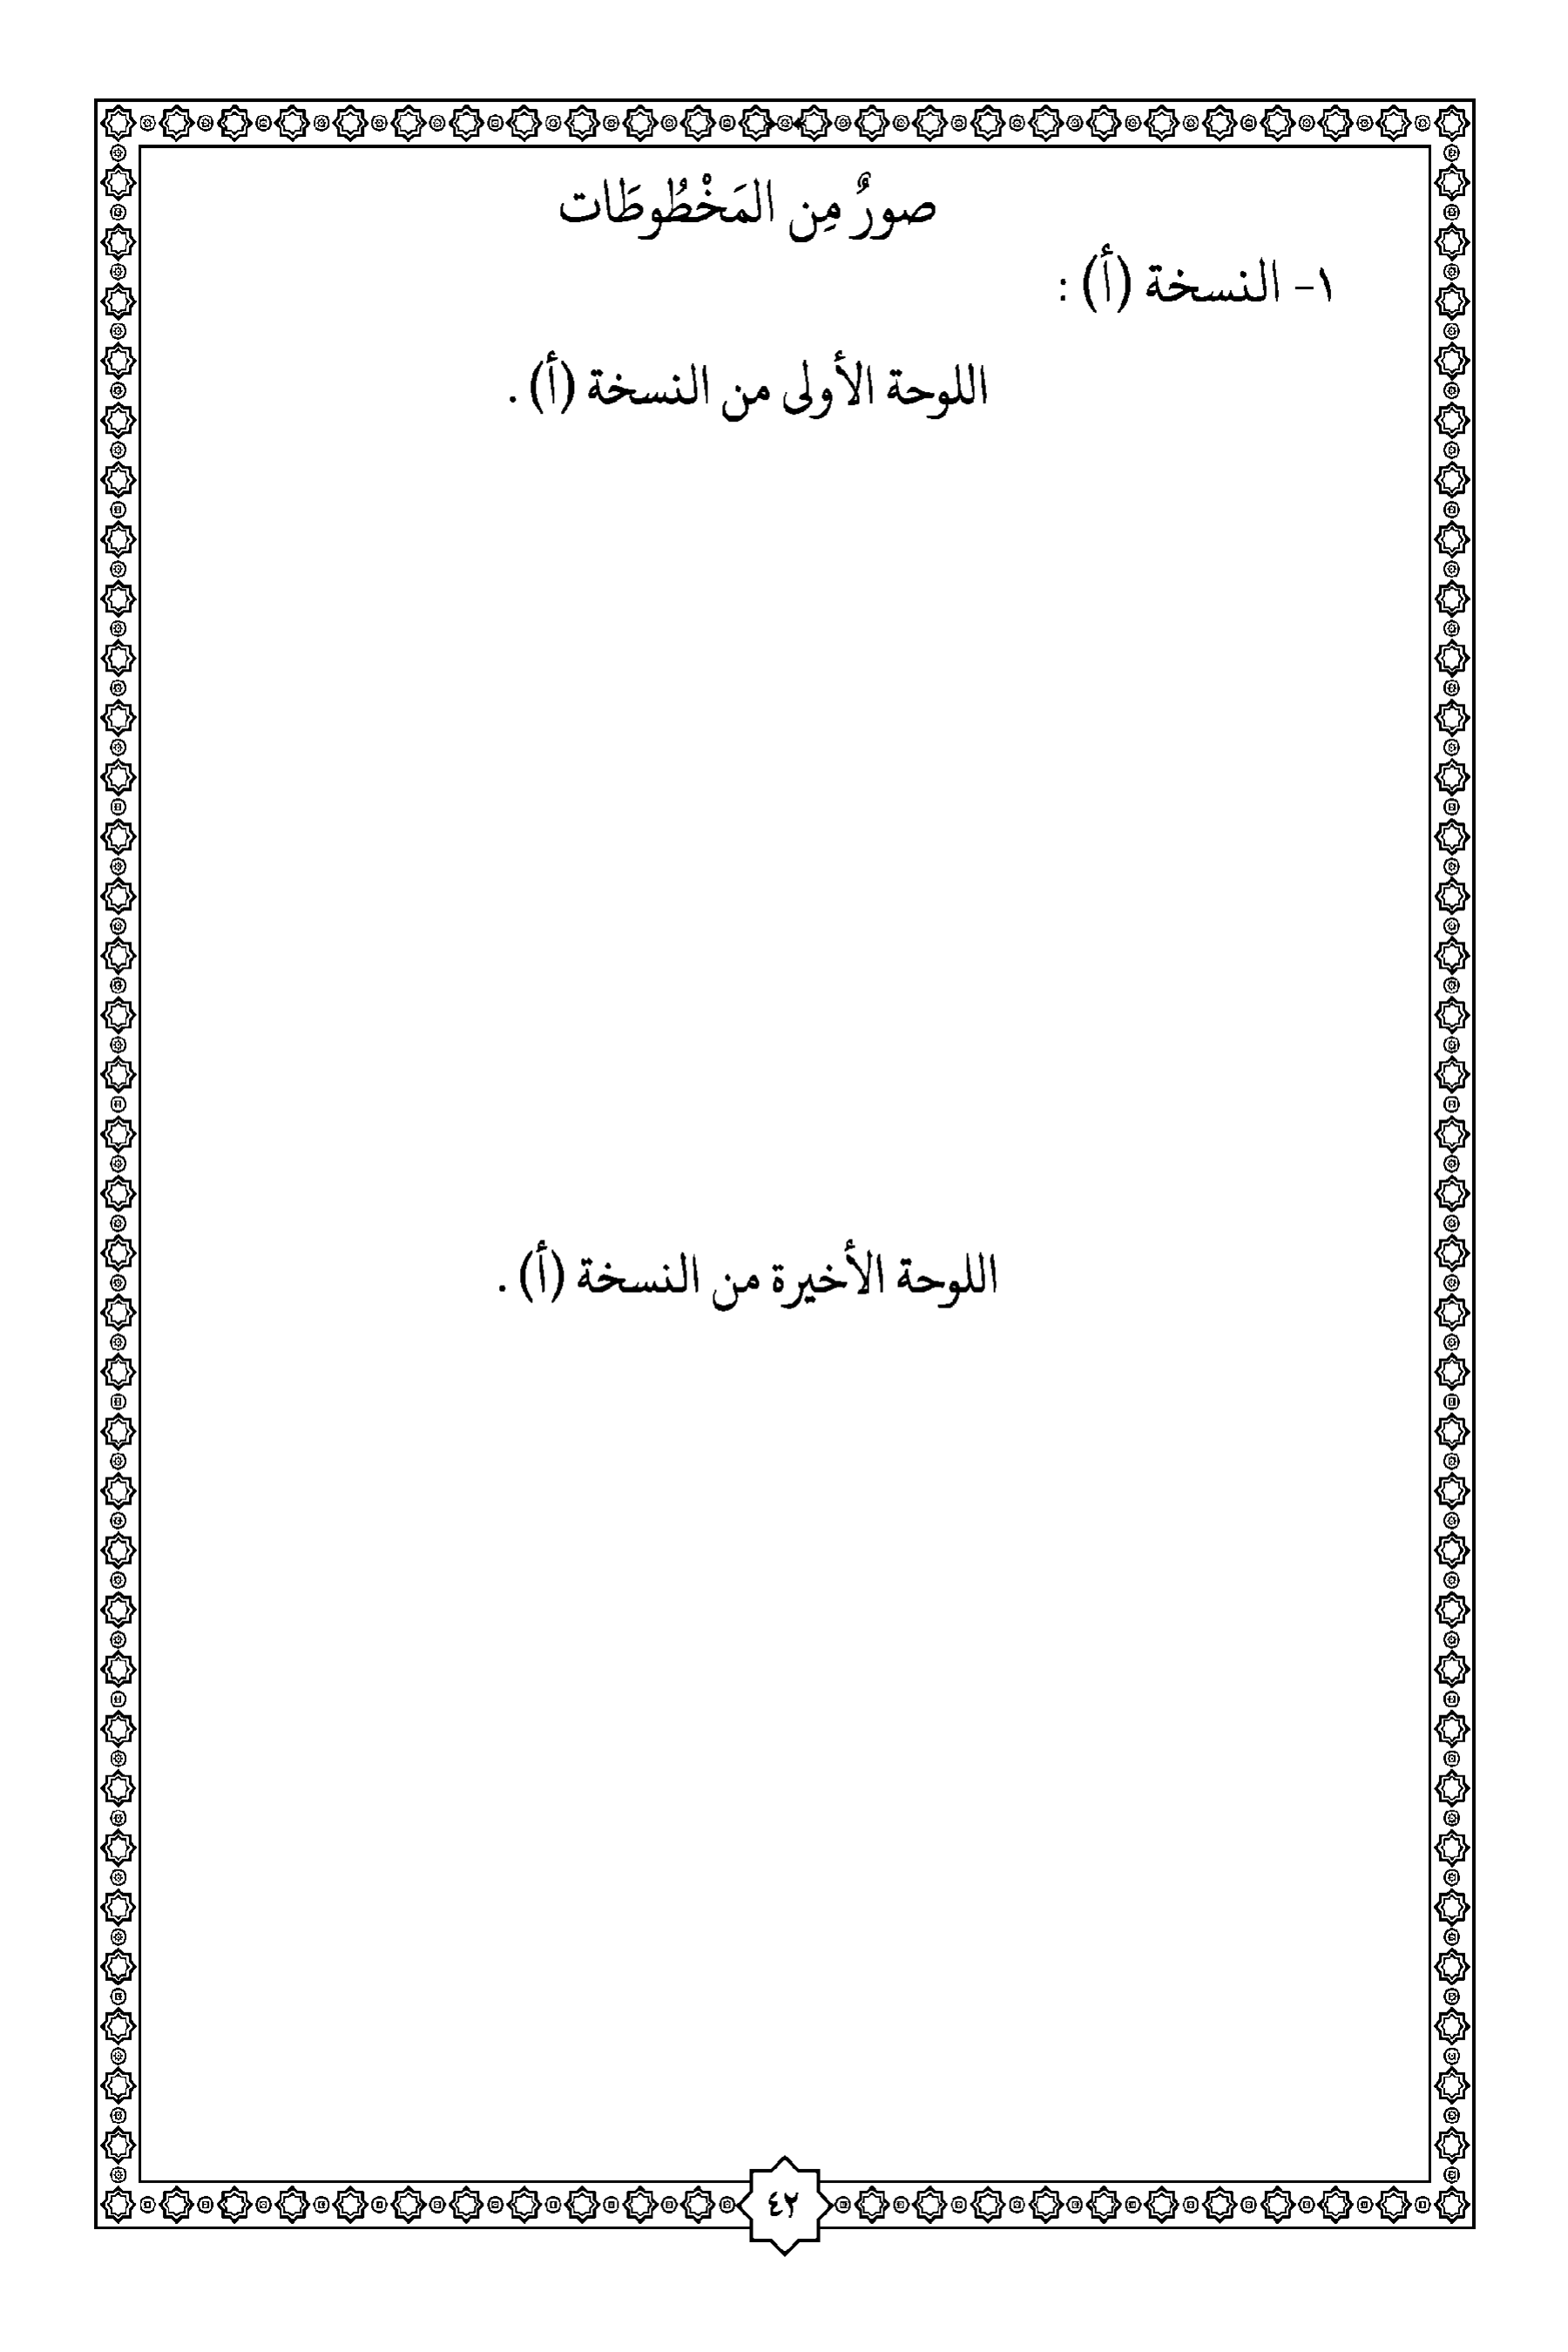 صورٌ مِن المَخْطُوطَات
١- النسخة (أ) :
اللوحة الأولى من النسخة (أ) .
اللوحة الأخيرة من النسخة (أ) .
٤٢